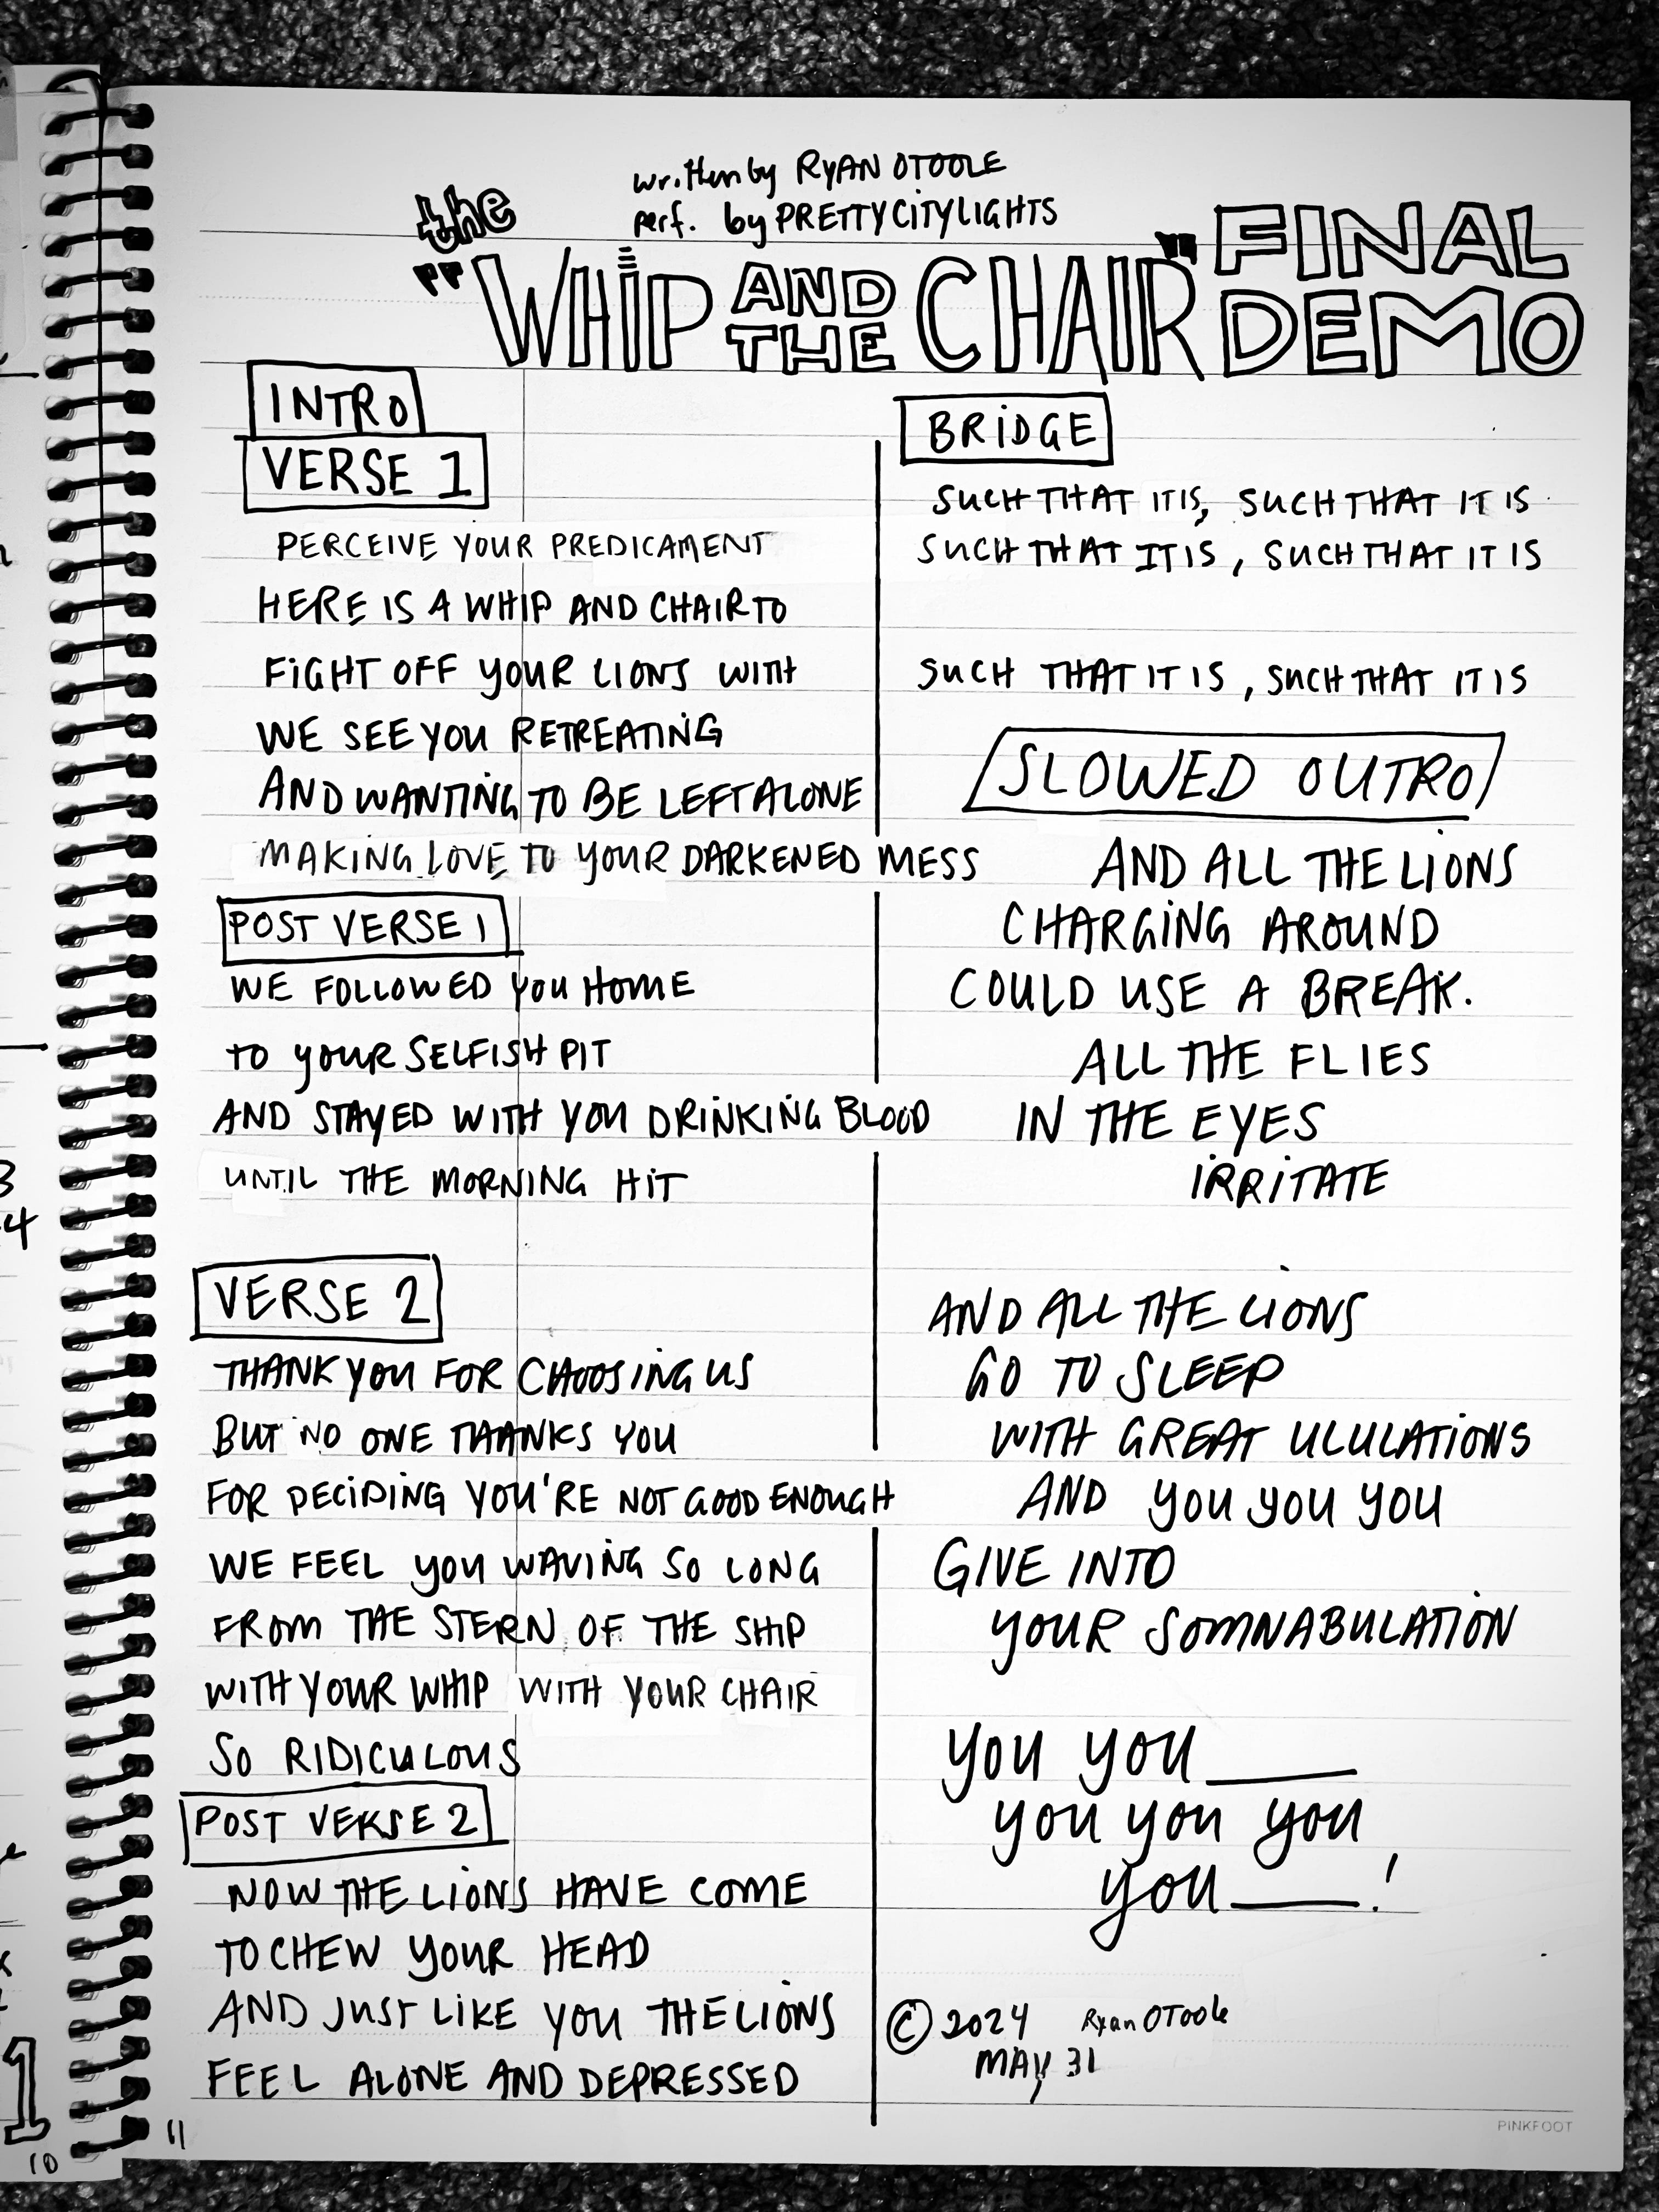 written by RYAN OTOOLE
perf. by PRETTYCITYLIGHTS
the
"WHIP AND THE CHAIR" FINAL DEMO
INTRO
VERSE 1
PERCEIVE YOUR PREDICAMENT
HERE IS A WHIP AND CHAIR TO
FIGHT OFF YOUR LIONS WITH
WE SEE YOU RETREATING
AND WANTING TO BE LEFT ALONE
MAKING LOVE TO YOUR DARKENED MESS
POST VERSE 1
WE FOLLOWED YOU HOME
TO YOUR SELFISH PIT
AND STAYED WITH YOU DRINKING BLOOD
UNTIL THE MORNING HIT
VERSE 2
THANK YOU FOR CHOOSING US
BUT NO ONE THANKS YOU
FOR DECIDING YOU'RE NOT GOOD ENOUGH
WE FEEL YOU WAVING SO LONG
FROM THE STERN OF THE SHIP
WITH YOUR WHIP WITH YOUR CHAIR
SO RIDICULOUS
POST VERSE 2
NOW THE LIONS HAVE COME
TO CHEW YOUR HEAD
AND JUST LIKE YOU THE LIONS
FEEL ALONE AND DEPRESSED
BRIDGE
SUCH THAT IT IS, SUCH THAT IT IS
SUCH THAT IT IS, SUCH THAT IT IS
SUCH THAT IT IS, SUCH THAT IT IS
SLOWED OUTRO
AND ALL THE LIONS
CHARGING AROUND
COULD USE A BREAK.
ALL THE FLIES
IN THE EYES
IRRITATE
AND ALL THE LIONS
GO TO SLEEP
WITH GREAT ULULATIONS
AND YOU YOU YOU
GIVE INTO
YOUR SOMNABULATION
YOU YOU____
YOU YOU YOU
YOU____!
© 2024 Ryan OToole
MAY 31
PINKFOOT
11
10
1
3
4